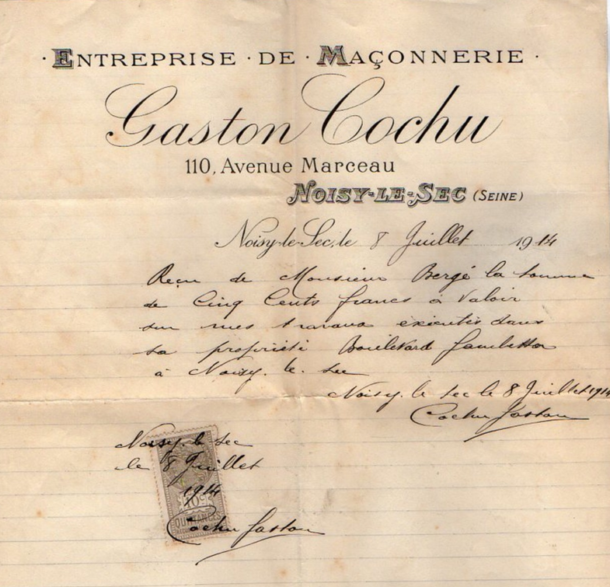 · ENTREPRISE · DE · MAÇONNERIE ·
Gaston Cochu
110, Avenue Marceau
NOISY-LE-SEC (SEINE)
Noisy-le-Sec, le 8 Juillet 1914
Reçu de Monsieur Bergé la somme
de Cinq Cents francs à valoir
sur mes travaux exécutés dans
sa propriété Boulevard Gambetta
à Noisy. le. sec
Noisy. le sec le 8 Juillet 1914
Cochu Gaston
Noisy. le sec
le 8 Juillet
1914
10c
QUITTANCES
Cochu Gaston